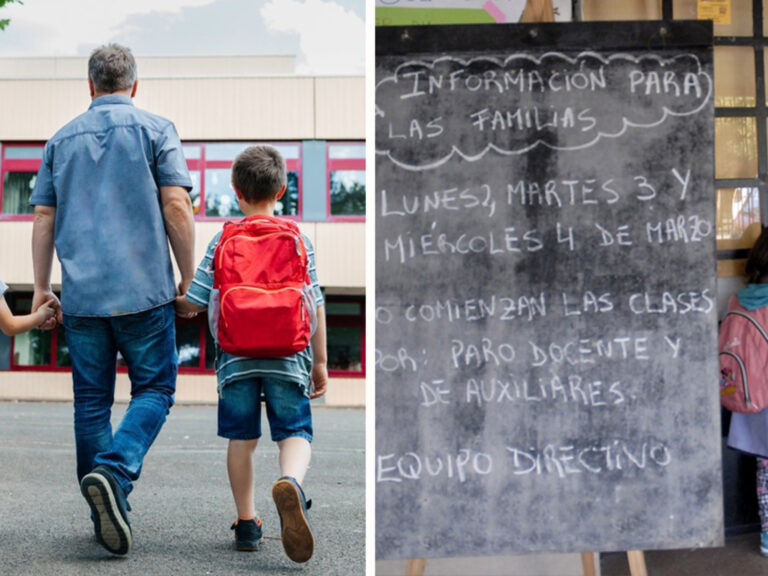 INFORMACIÓN PARA
LAS FAMILIAS
LUNES 2, MARTES 3 Y
MIÉRCOLES 4 DE MARZO
O COMIENZAN LAS CLASES
POR: PARO DOCENTE Y
DE AUXILIARES.
EQUIPO DIRECTIVO